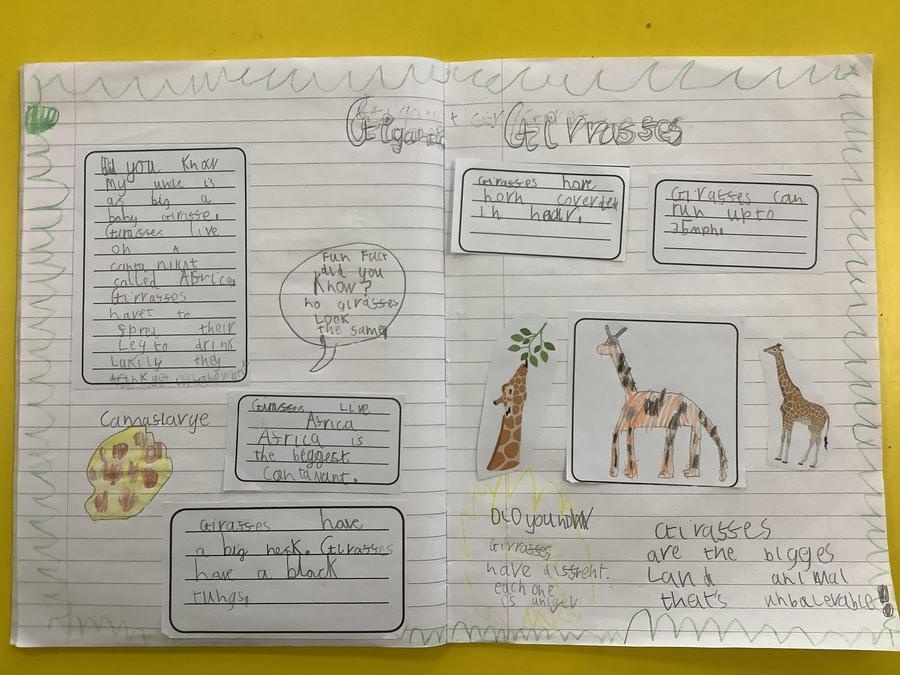 Gigantic Girrasses
Did you know
My uncle is
as big a
baby Girasse.
Girasses live
on a
cantu nint
called Africa
Girrasses
havet to
spred their
Leg to drink
Lukily they
Fun Fact
did you
Know?
no girasses
Look
the same
Camaslarge
Girasses Live
Africa
Africa is
the biggest
Contanant.
Girasses have
a big neck. Girasses
have a black
tungs.
Girasses have
horn covered
in heair.
Girasses can
run upto
35mph.
DiD you now
Girrasses
have dissrent.
each one
is uniqer
Girasses
are the bigges
Land animal
that's unbaleveable!